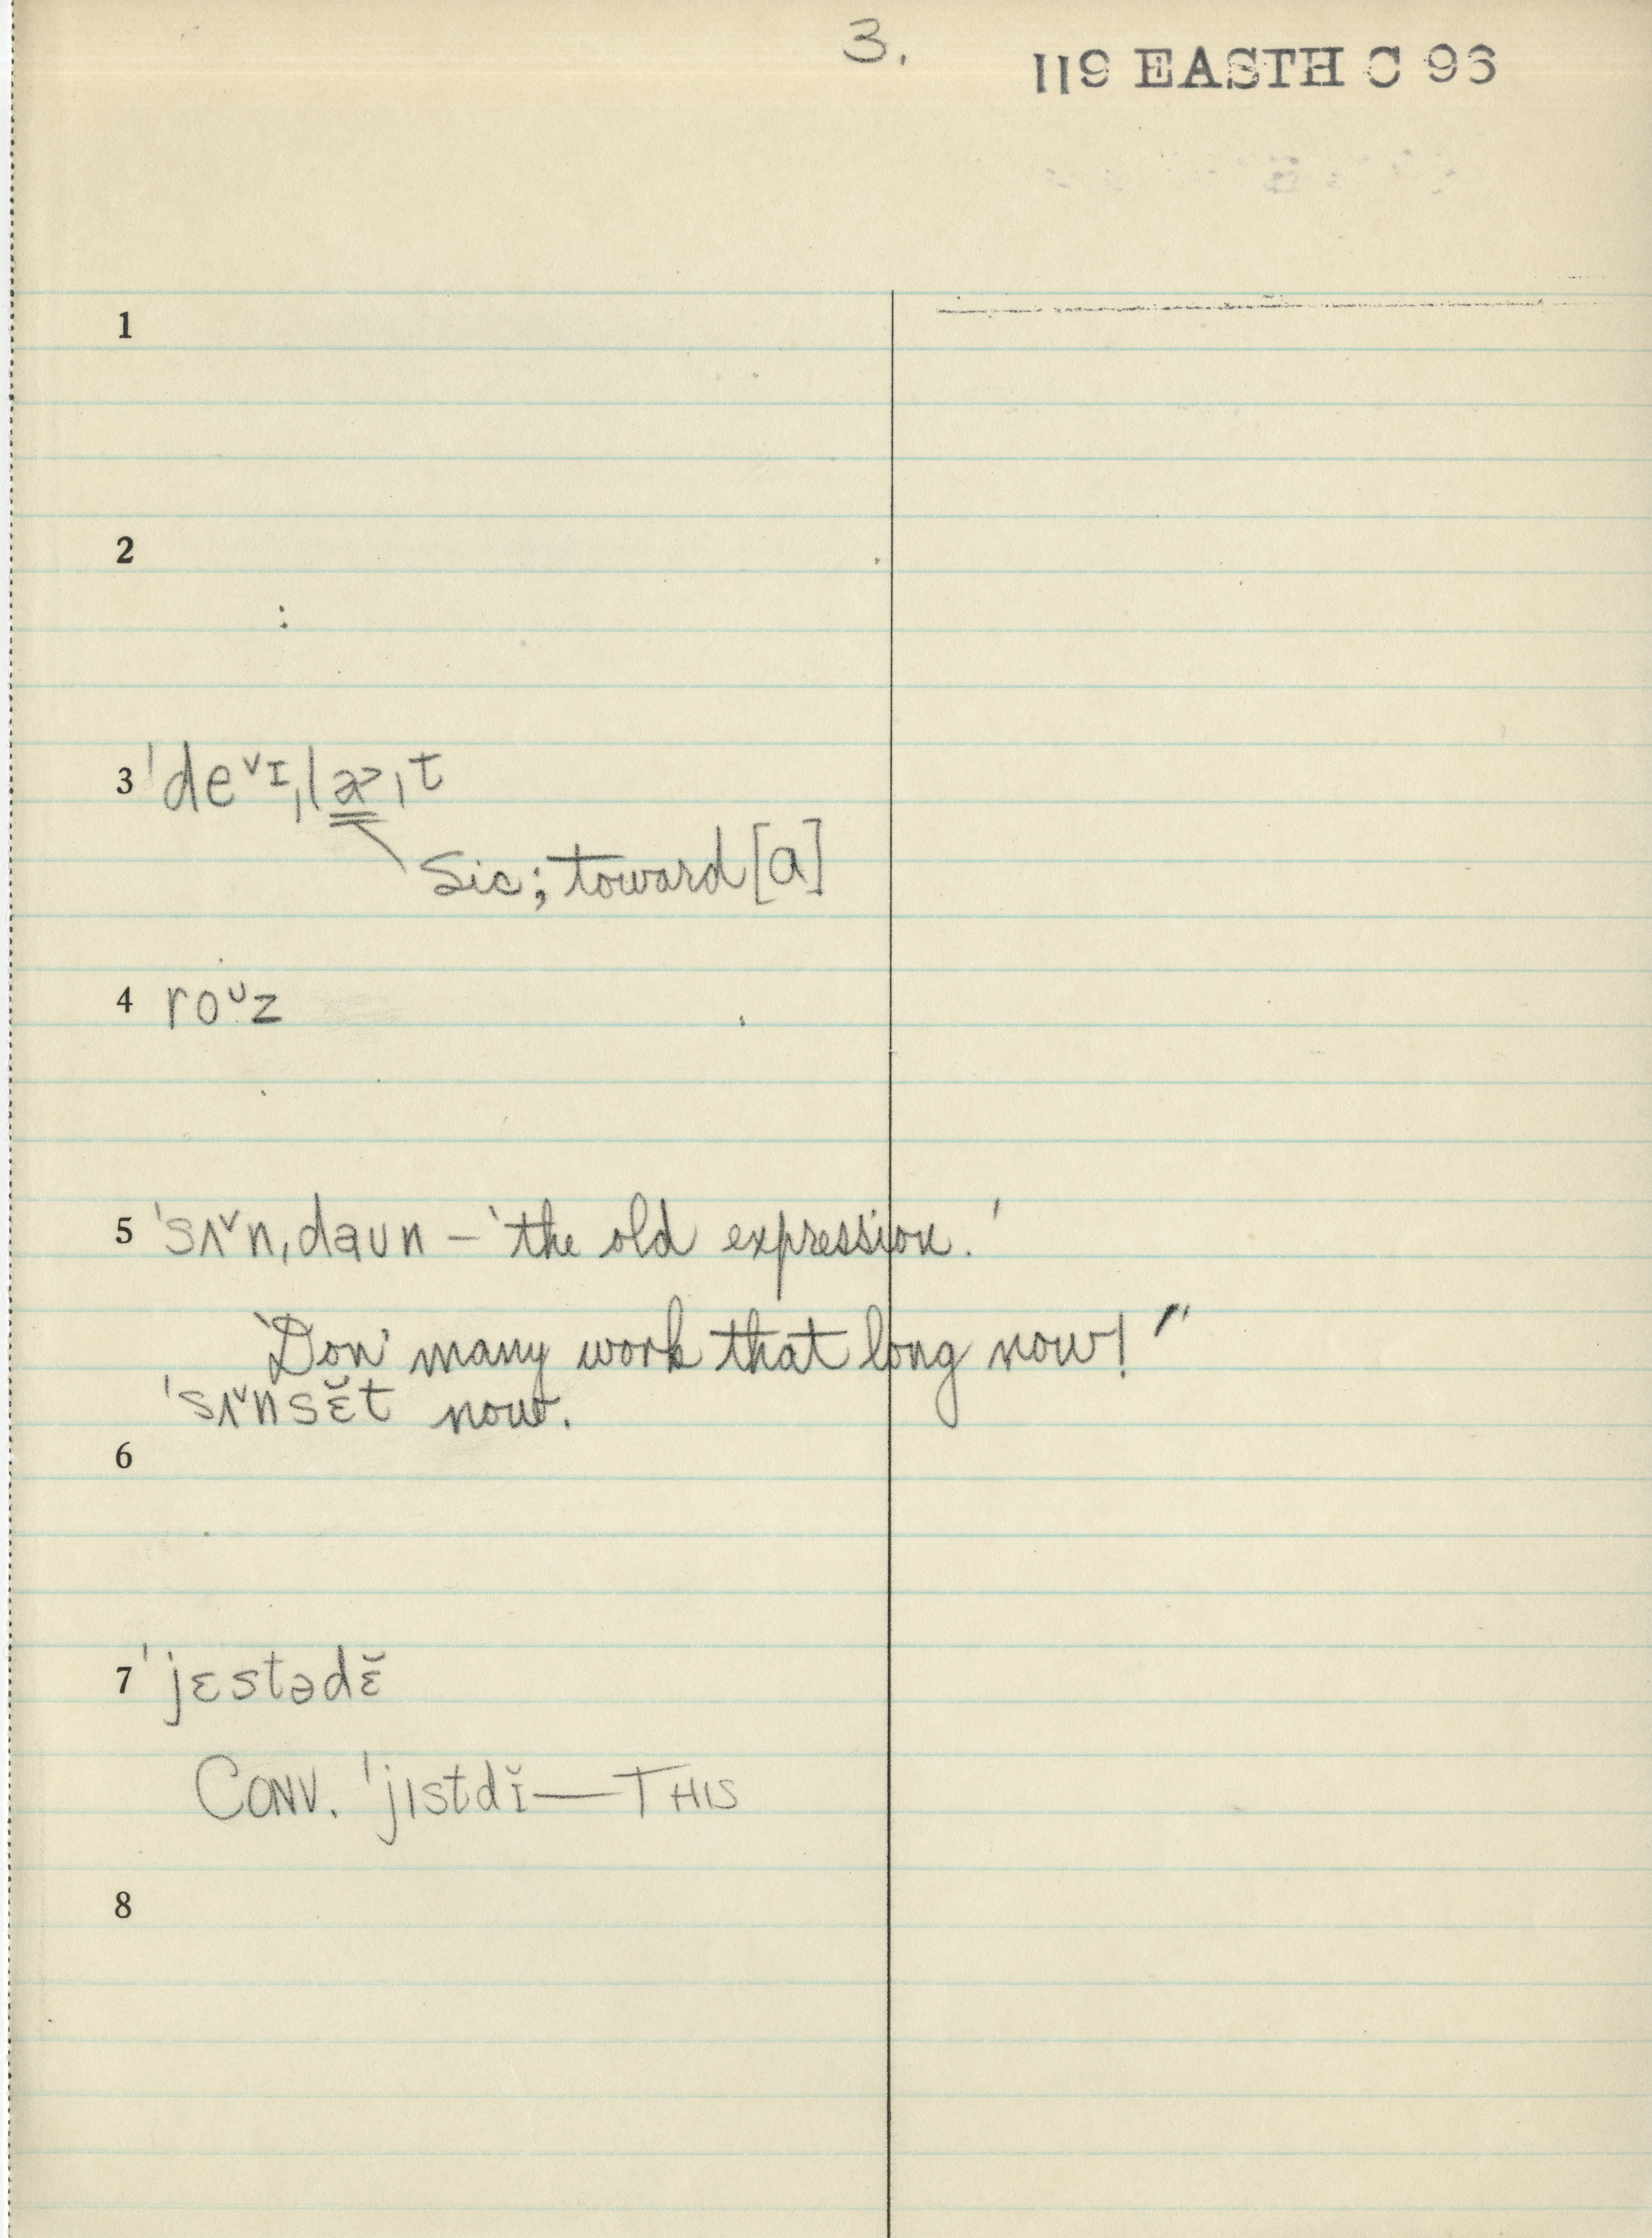 3.
119 EASTH C 96
1
2
3 ˈdeᵛɪˌla˃ɪt
Sic; toward [a]
4 roᶷz
5 ˈsʌᵛnˌdaʊn – 'the old expression.'
"Don' many work that long now!"
ˈsʌᵛnsɛ̆t now.
6
7 ˈjɛstədɛ̆
CONV. ˈjɪstdɪ̆ — THIS
8